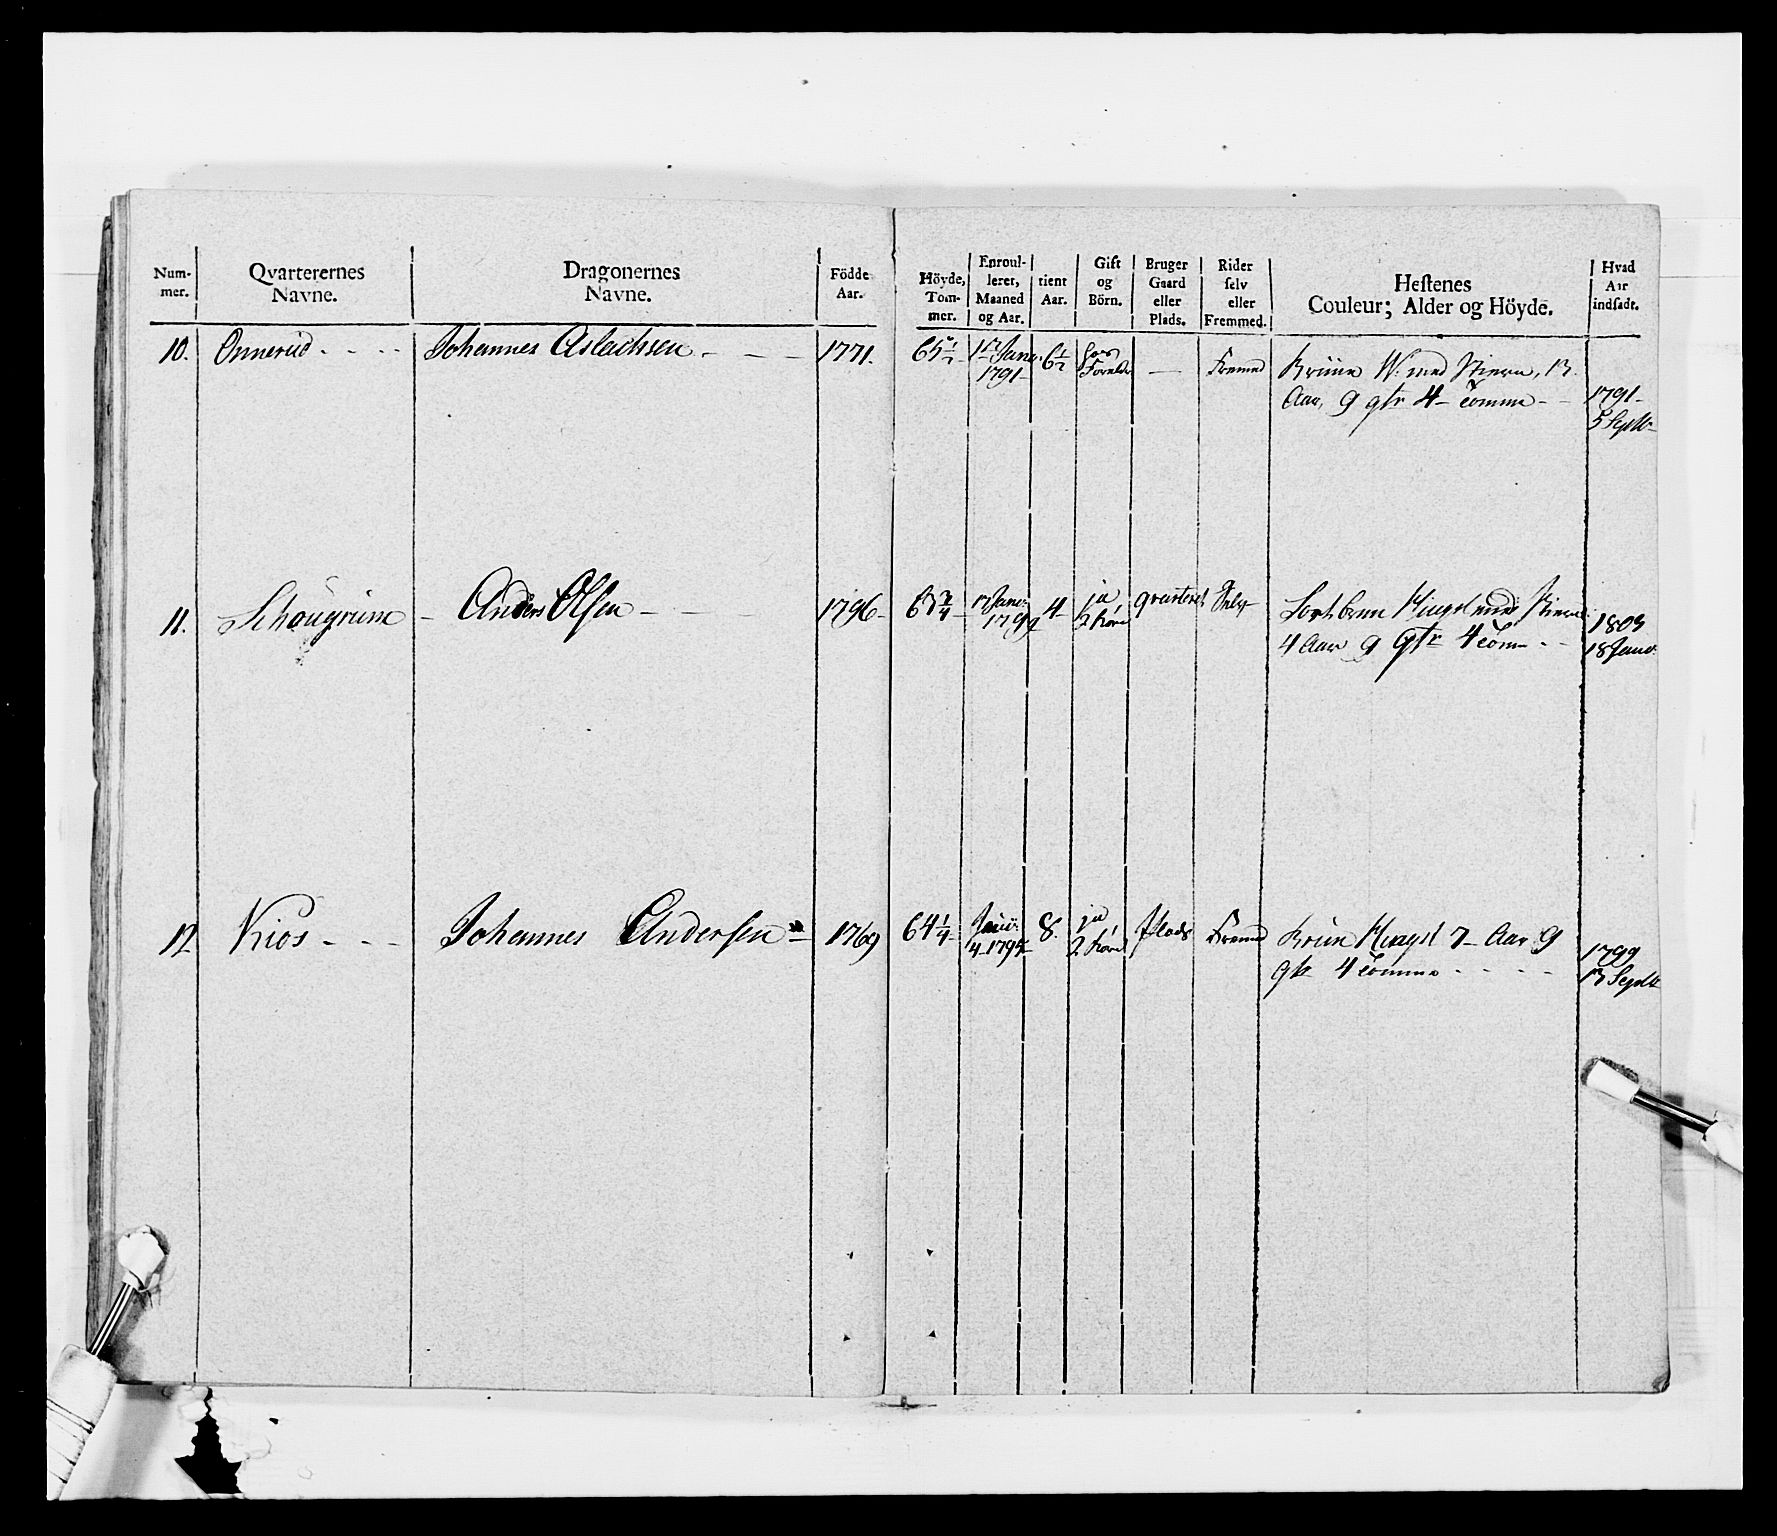 Num-
mer.
Qvarterernes
Navne.
Dragonernes
Navne.
Födde
Aar.
Höyde,
Tom-
mer.
Enroul-
leret,
Maaned
og Aar.
tient
Aar.
Gift
og
Börn.
Bruger
Gaard
eller
Plads.
Rider
selv
eller
Fremmed.
Hestenes
Couleur; Alder og Höyde.
Hvad
Aar
indsadt.
10. Onnerud Johannes Aslachsen 1771.
65 1/2
1791
6 1/2
Foreldr
Fremed
Brun W: med Stiern, 13
Aar, 9 qtr 4 Tomme
1791
5 Septbr
11. Schougrim Anders Olsen 1796
63 3/4
17 Janv:
1799
4
ja
2 börn
qvarteret
Selv
Sortbrun Hingst med Stierne
4 Aar 9 qtr 4 Tom
1803
18 Janv:
12 Kios Johannes Andersen 1769
64 1/4
4 1795
8.
ja
2 börn
Plads
Fremd
Brun Hingst 7 Aar 9
qtr 4 Tomme
1799
13 Septbr